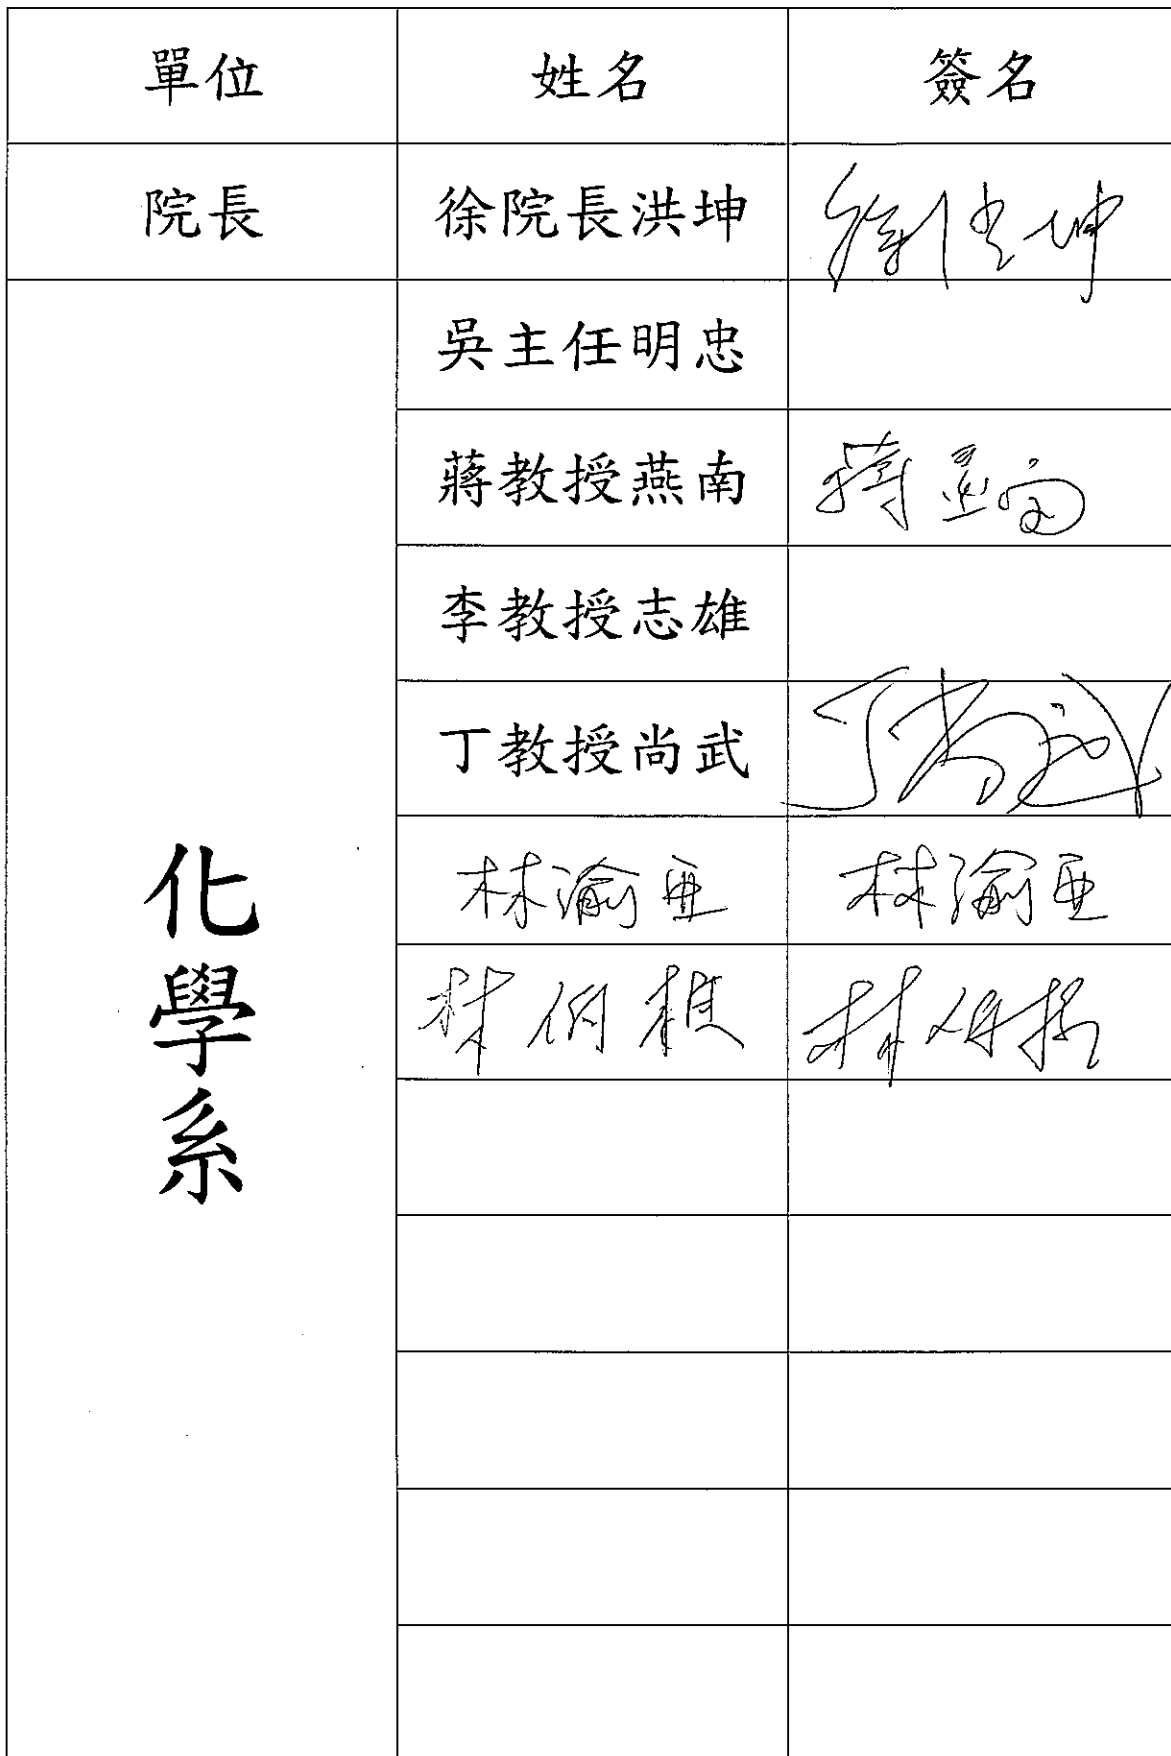 單位 姓名 簽名
院長 徐院長洪坤 徐洪坤
化學系
吳主任明忠
蔣教授燕南 蔣燕南
李教授志雄
丁教授尚武 丁尚武
林渝亞 林渝亞
林伯 林伯